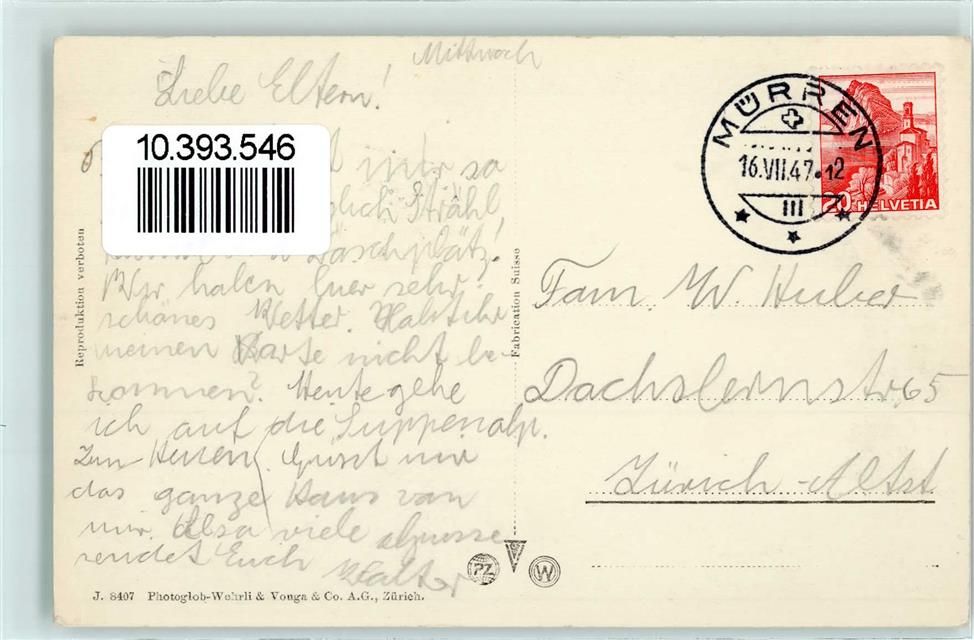 Mittwoch
Liebe Eltern!
10.393.546
mir so
Strähl,
Wir haben hier sehr
schönes Wetter. Habt ihr
meinen Karte nicht be-
kommen? Heute gehe
ich auf die Suppenalp.
Zum Heuen. Grüsst mir
das ganze Haus von
mir. Also viele Grüsse
sendet Euch
Walter
Reproduktion verboten
Fabrication Suisse
MÜRREN
16.VII.47.12
III
20 HELVETIA
Fam. W. Huber
Dachslernstr. 65
Zürich-Altst
PZ
W
J. 8407 Photoglob-Wehrli & Vouga & Co. A.G., Zürich.